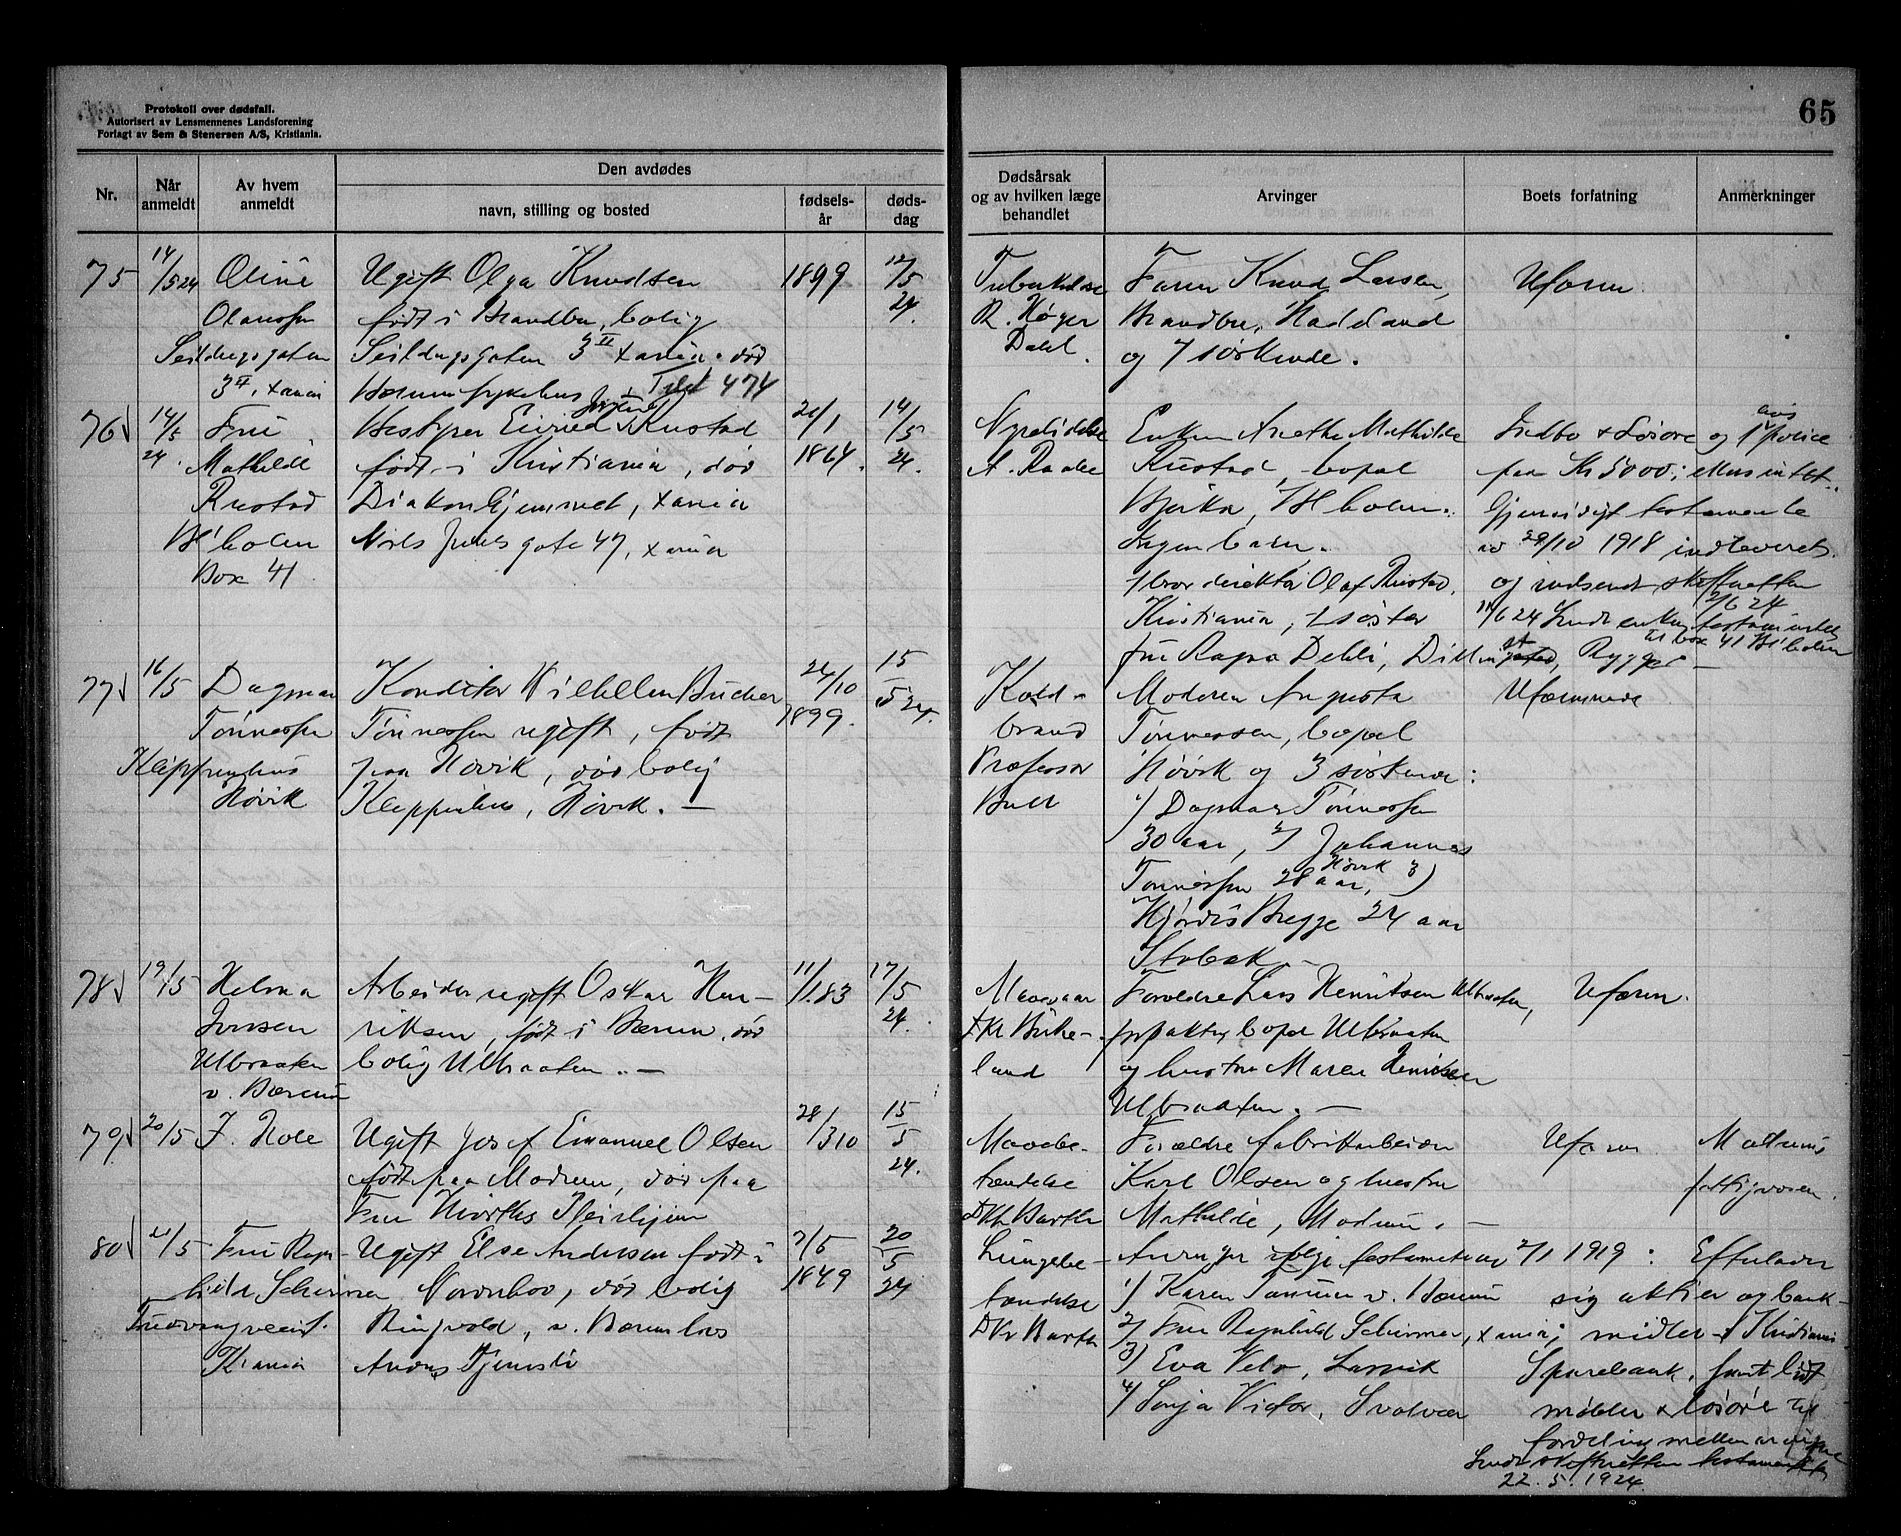 Protokoll over dødsfall.
Autorisert av Lensmennenes Landsforening
Forlagt av Sem & Stenersen A/S, Kristiania.
65
Nr.
Når anmeldt
Av hvem anmeldt
Den avdødes
navn, stilling og bosted
fødselsår
dødsdag
Dødsårsak og av hvilken læge behandlet
Arvinger
Boets forfatning
Anmerkninger
75 14/5 24 Oline Ugift Olga Knudsen 1899 12/5 Tuberkulose Faren Knud Larsen, Uformu
Olaussen født i Brandbu, bolig 24. R. Høyer Brandbu, Hadeland
Seildugsgaten Seildugsgaten 3 II Xania. død Dahl. og 7 søskende.
3 II, Xania Bærum sykehus Tlf 474
76 14/5 Fru Bestyrer Rustad 20/1 14/5 Nyrelidelse Enken Anethe Mathilde Indbo & Løsøre og 1 police
24. Mathilde født i Kristiania, død 1864. 24. A. Raabe Rustad, bopæl paa Kr 5000; ellers intet.
Rustad Diakonhjemmet, Xania Bjerka, Bl holm. Gjensidigt testamente
Bl holm Niels Juels gate 47, Xania Ingen barn. av 29/10 1918 indleveret
Box 41 1 bror direktør Olaf Rustad, og indsendt skifteretten
Kristiania, 1 søster 2/6 24
11/6 24 Sendt enken testamentet
til box 41 Bl holm
fru Ragna Dehli, Rygge —
77 16/5 Dagmar Konditor Wilhelm Bucher 24/10 15/5 24. Kold- Moderen Augusta Uformuende
Tønnessen Tønnessen ugift, født 1899. brand Tønnessen, bopæl
Kleppenhus paa Høvik, død bolig Professor Høvik og 3 søskende:
Høvik Kleppenhus, Høvik. — Bull 1) Dagmar Tønnessen
30 aar, 2) Johannes
Tønnessen 28 aar, Høvik 3)
Hjørdis Bregge 24 aar
Stabæk —
78 19/5 Helma Arbeider ugift Oskar Hen- 11/1.83 17/5 Mavesaar Forældre Lars Henriksen Ulbraaten, Uformu.
Jonsen riksen, født i Bærum, død 24. Dr Birke- forpakter, bopæl Ulbraaten
Ulbraaten bolig Ulbraaten. — land og hustru Maren Henriksen
v. Bærum Ulbraaten. —
79 20/5 J. Hole Ugift Josef Emanuel Olsen 28/3 10 15/5 Mavebe- Forældre fabrikarbeider Uformu Modums
født paa Modum, død paa 24. tændelse Karl Olsen og hustru fattigvæsen.
Fru Hiorths Pleiehjem Dr Barth Mathilde, Modum. —
80 20/5 Fru Ragn- Ugift Else Andersen født i 7/5 20/5 Lungebe- Arvinger ifølge testamente av 2/1 1919: Efterlader
hilde Schirmer Norderhov, død bolig 1849 24 tændelse 1) Karen Tanum v. Bærum sig aktier og bank-
Ringvold, v. Bærum hos Dr Barth 2) Fru Ragnhild Schirmer, Xania; midler i Kristiania
Kr.ania 3) Eva Velo, Larvik Sparebank, samt lidt
4) Sonja Victor, Svolvær møbler & løsøre til
fordeling mellem arvingene
Sendt skifteretten testamentet
22. 5. 1924.